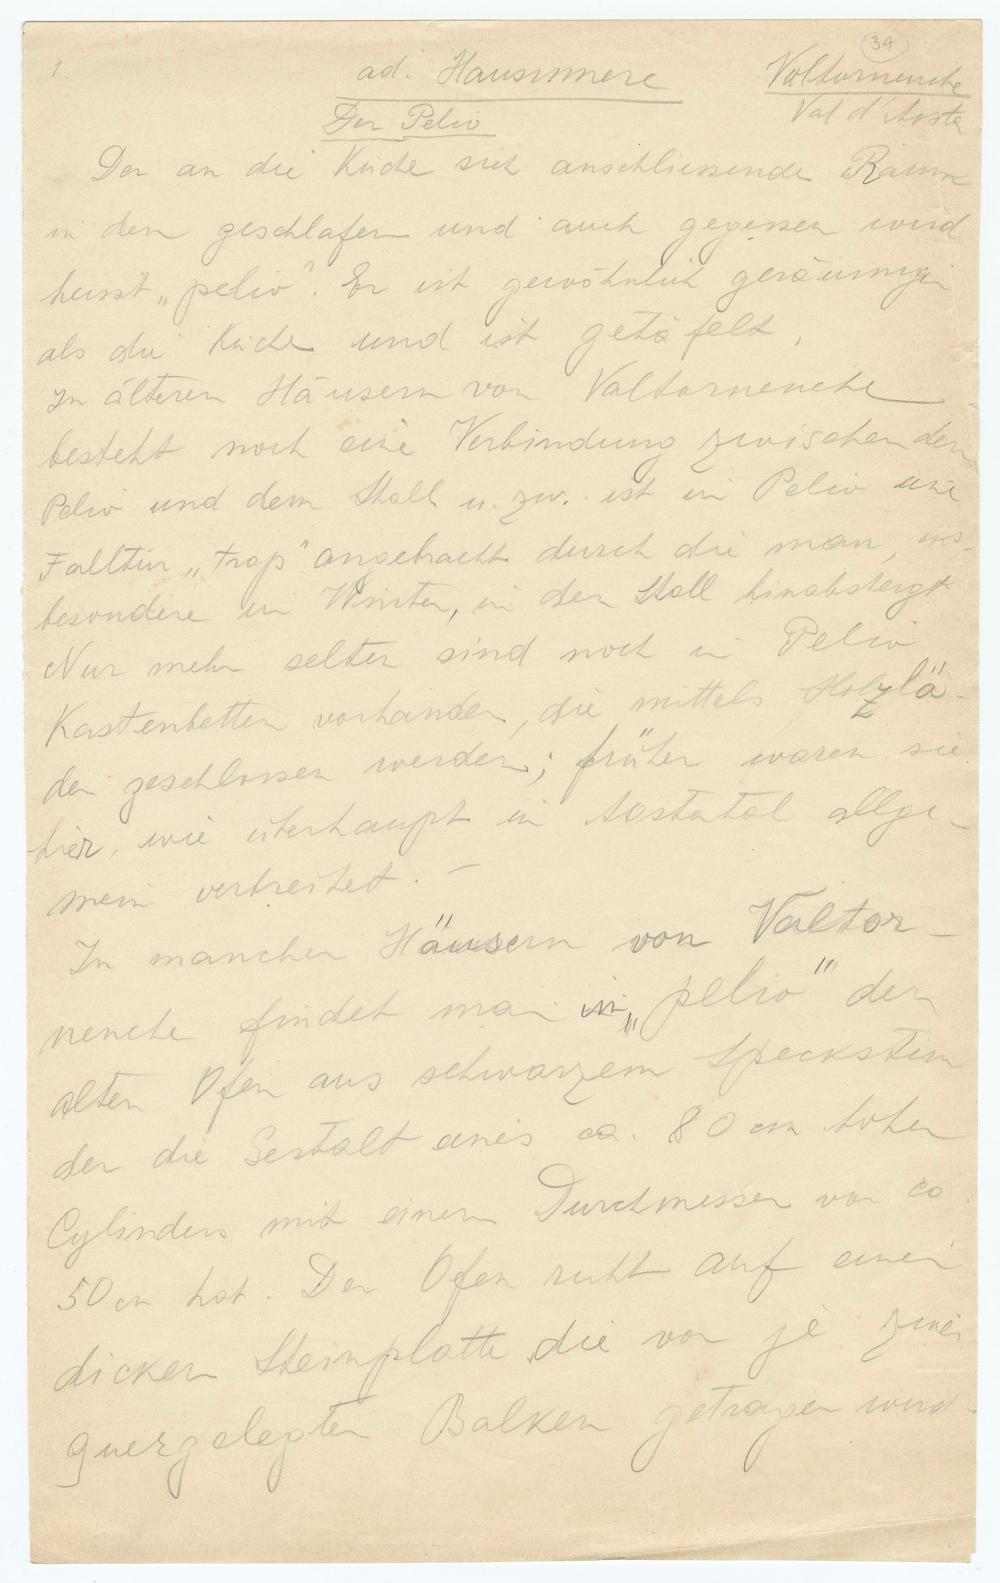 34
1.
ad. Hausinnere
Valtornenche
Val d'Aosta
Der Pelio
Der an die Küche sich anschliessende Raum
in dem geschlafen und auch gegessen wird
heisst „pelio". Er ist gewöhnlich geräumiger
als die Küche und ist getäfelt,
In älteren Häusern von Valtornenche
besteht noch eine Verbindung zwischen dem
Pelio und dem Stall u. zw. ist im Pelio eine
Falltür „trap" angebracht durch die man, ins-
besondere im Winter, in den Stall hinabsteigt
Nur mehr selten sind noch im Pelio
Kastenbetten vorhanden, die mittels Holzlä-
den geschlossen werden; früher waren sie
hier, wie überhaupt im Aostatal allge-
mein verbreitet. –
In manchen Häusern von Valtor-
nenche findet man im „pelio" den
alten Ofen aus schwarzem Speckstein
der die Gestalt eines ca. 80 cm hohen
Cylinders mit einem Durchmesser von ca.
50 cm hat. Der Ofen ruht auf einer
dicken Steinplatte, die von je zwei
quergelegten Balken getragen wird